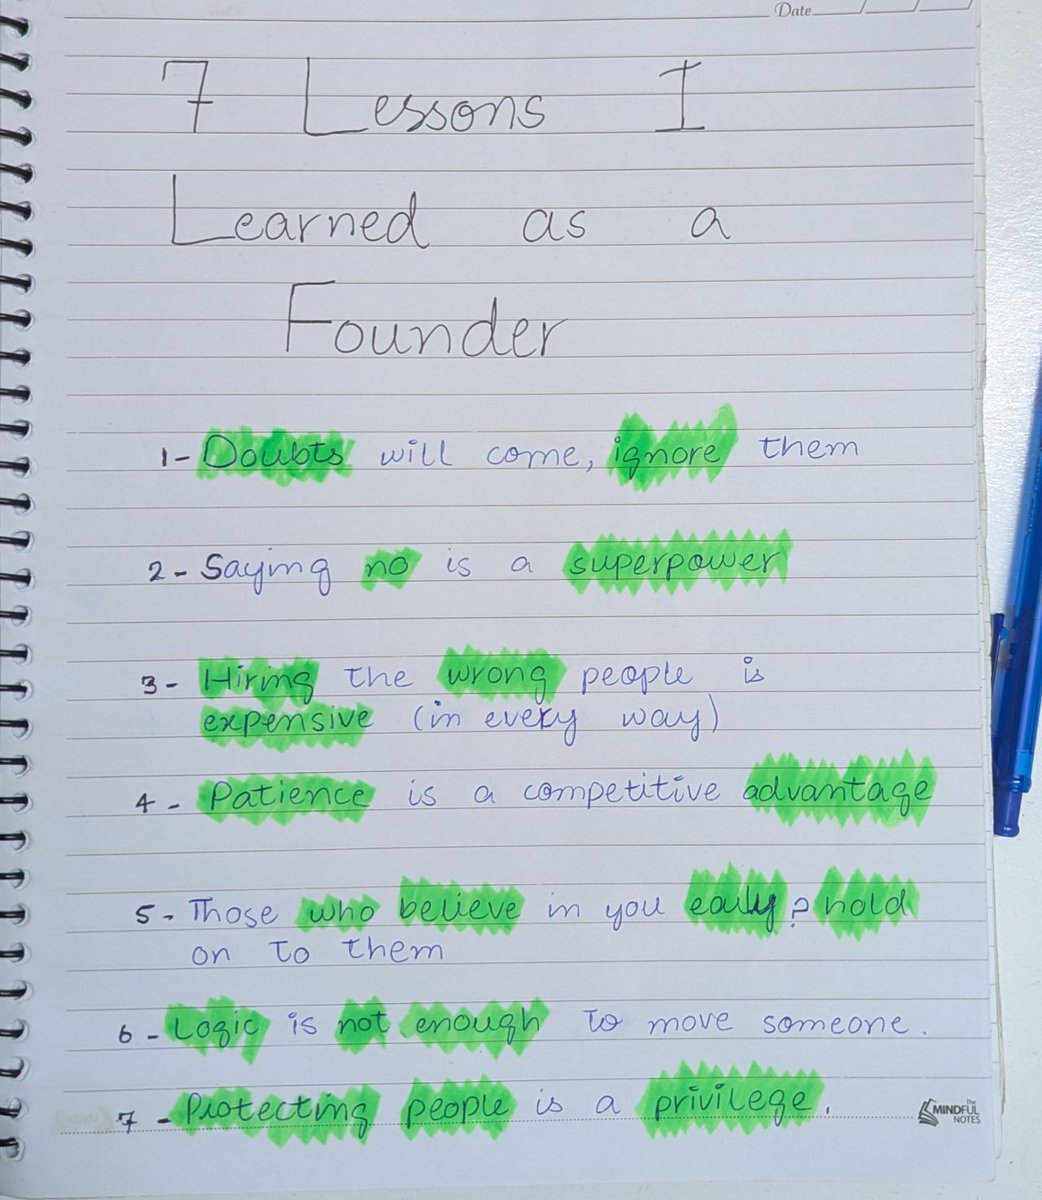 Date
7 Lessons I
Learned as a
Founder
1- Doubts will come, ignore them
2- Saying no is a superpower
3- Hiring the wrong people is
expensive (in every way)
4- Patience is a competitive advantage
5- Those who believe in you early? hold
on to them
6- Logic is not enough to move someone.
7- Protecting people is a privilege.
The
MINDFUL
NOTES